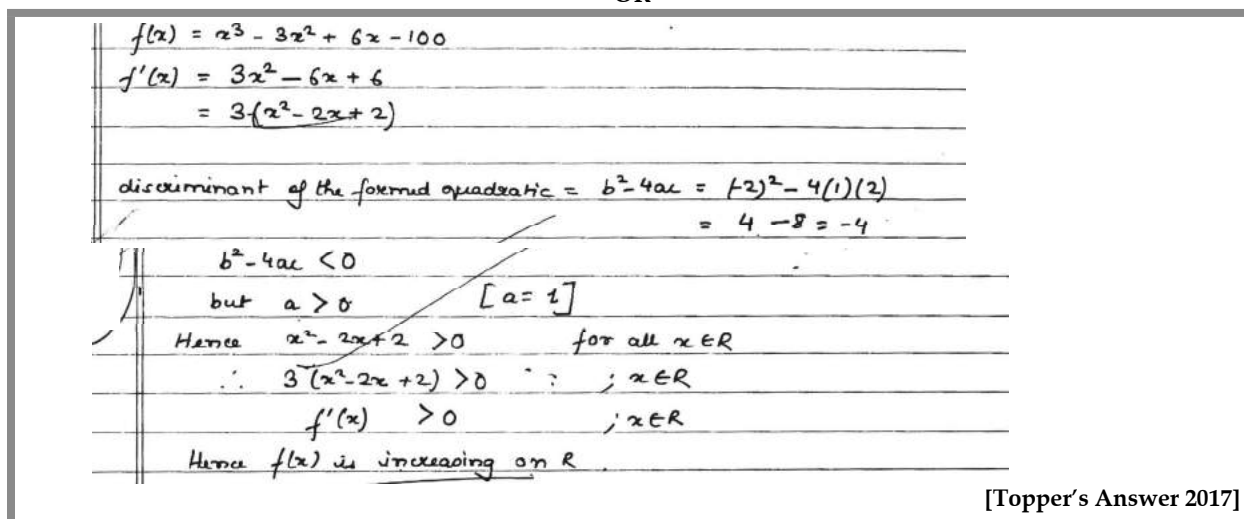 OR
f(x) = x³ - 3x² + 6x - 100
f'(x) = 3x² - 6x + 6
= 3(x² - 2x + 2)
discriminant of the formed quadratic = b² - 4ac = (-2)² - 4(1)(2)
= 4 - 8 = -4
b² - 4ac < 0
but a > 0 [a = 1]
Hence x² - 2x + 2 > 0 for all x ∈ R
∴ 3(x² - 2x + 2) > 0 ; x ∈ R
f'(x) > 0 ; x ∈ R
Hence f(x) is increasing on R.
[Topper's Answer 2017]